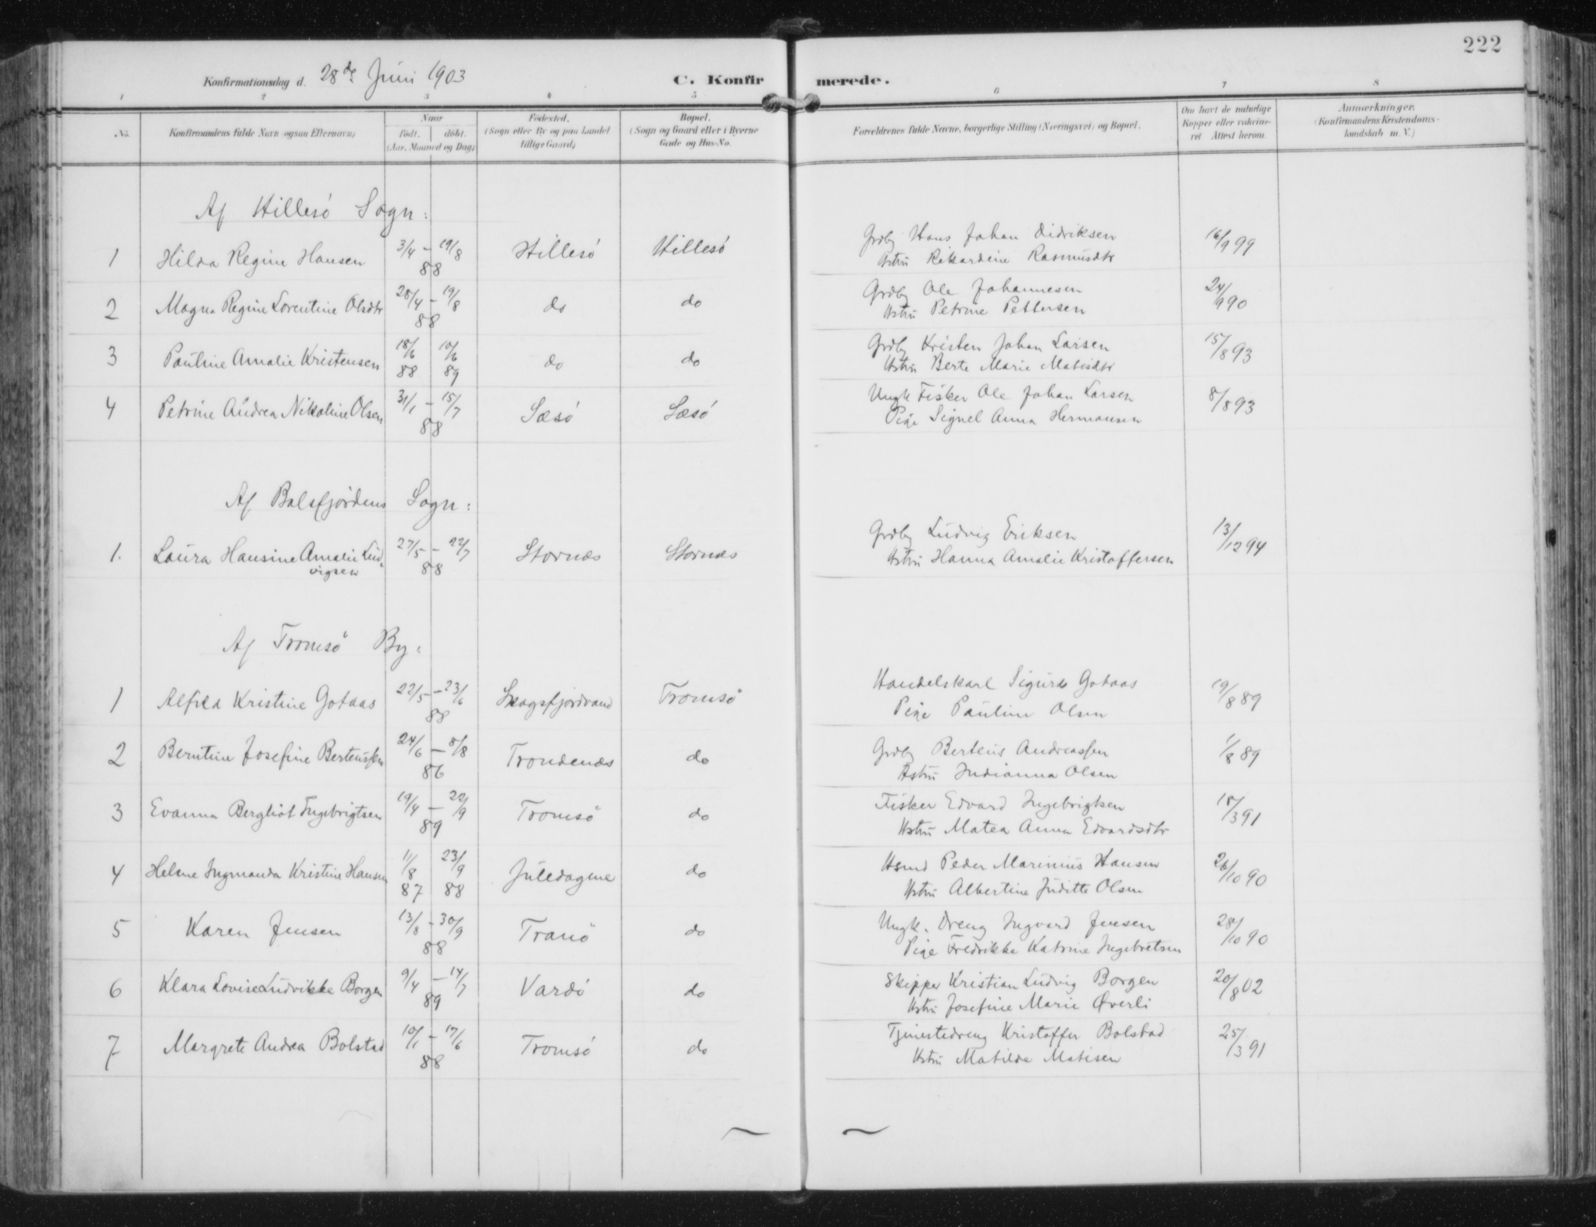 222
Konfirmationsdag d. 28de Juni 1903
C. Konfirmerede.
1 2 3 4 5 6 7 8
No. Konfirmandens fulde Navn ogsaa Efternavn. Naar født. døbt. (Aar, Maaned og Dag) Fødested. (Sogn eller By og paa Landet tillige Gaard) Bopæl. (Sogn og Gaard eller i Byerne Gade og Hus-No. Forældrenes fulde Navne, borgerlige Stilling (Næringsvei) og Bopæl. Om havt de naturlige Kopper eller vaccineret Attest herom. Anmærkninger. (Konfirmandens Kristendomskundskab m. V.)
Af Hillesö Sogn:
1 Hilda Regine Hansen 3/4 – 19/8 88 Hillesö Hillesö Grdbg Hans Johan Didriksen Hstru Rikardine Rasmusdtr 16/9 99
2 Magna Regine Lorentine Olsdtr 28/4 – 19/8 88 do do Grdbg Ole Johannesen Hstru Petrine Pettersen 24/9 90
3 Pauline Amalie Kristensen 18/6 88 10/6 89 do do Grdbg Kristen Johan Larsen Hstru Berte Marie Matisdtr 15/8 93
4 Petrine Andrea Nikoline Olsen 31/1 – 15/7 88 Sæsö Sæsö Ungk Fisker Ole Johan Larsen Pige Signel Anna Hermansen 8/8 93
Af Balsfjordens Sogn:
1. Laura Hansine Amalie Ludvigsen 27/5 – 22/7 88 Stornæs Stornæs Grdbg Ludvig Eriksen Hstru Hanna Amalie Kristoffersen 13/12 94
Af Tromsö By:
1 Alfilda Kristine Gotaas 22/5 – 23/6 88 Skagsfjordvand Tromsö Handelskarl Sigurd Gotaas Pige Pauline Olsen 19/8 89
2 Berntine Josefine Berteussen 24/6 – 8/8 86 Trondenæs do Grdbg Berteus Andreassen Hstru Indianna Olsen 1/8 89
3 Evanna Bergliot Ingebrigtsen 19/4 – 22/9 89 Tromsö do Fisker Edvard Ingebrigtsen Hstru Matea Anna Edvardsdtr 18/3 91
4 Helene Ingmanda Kristine Hansen 1/8 87 23/9 88 do Hsmd Peder Marinius Hansen Hstru Albertine Juditte Olsen 26/10 90
5 Karen Jensen 13/8 – 30/9 88 Tranö do Ungk. Dreng Ingvard Jensen Pige Fredrikke Katrine Ingebretsen 28/10 90
6 Klara Lovise Ludvikke Borgen 9/4 – 14/7 89 Vardö do Skipper Kristian Ludvig Borgen Hstru Josefine Marie Øverli 20/8 02
7 Margrete Andrea Bolstad 10/1 – 17/6 88 Tromsö do Tjenestedreng Kristoffer Bolstad Hstru Matilde Matisen 25/3 91